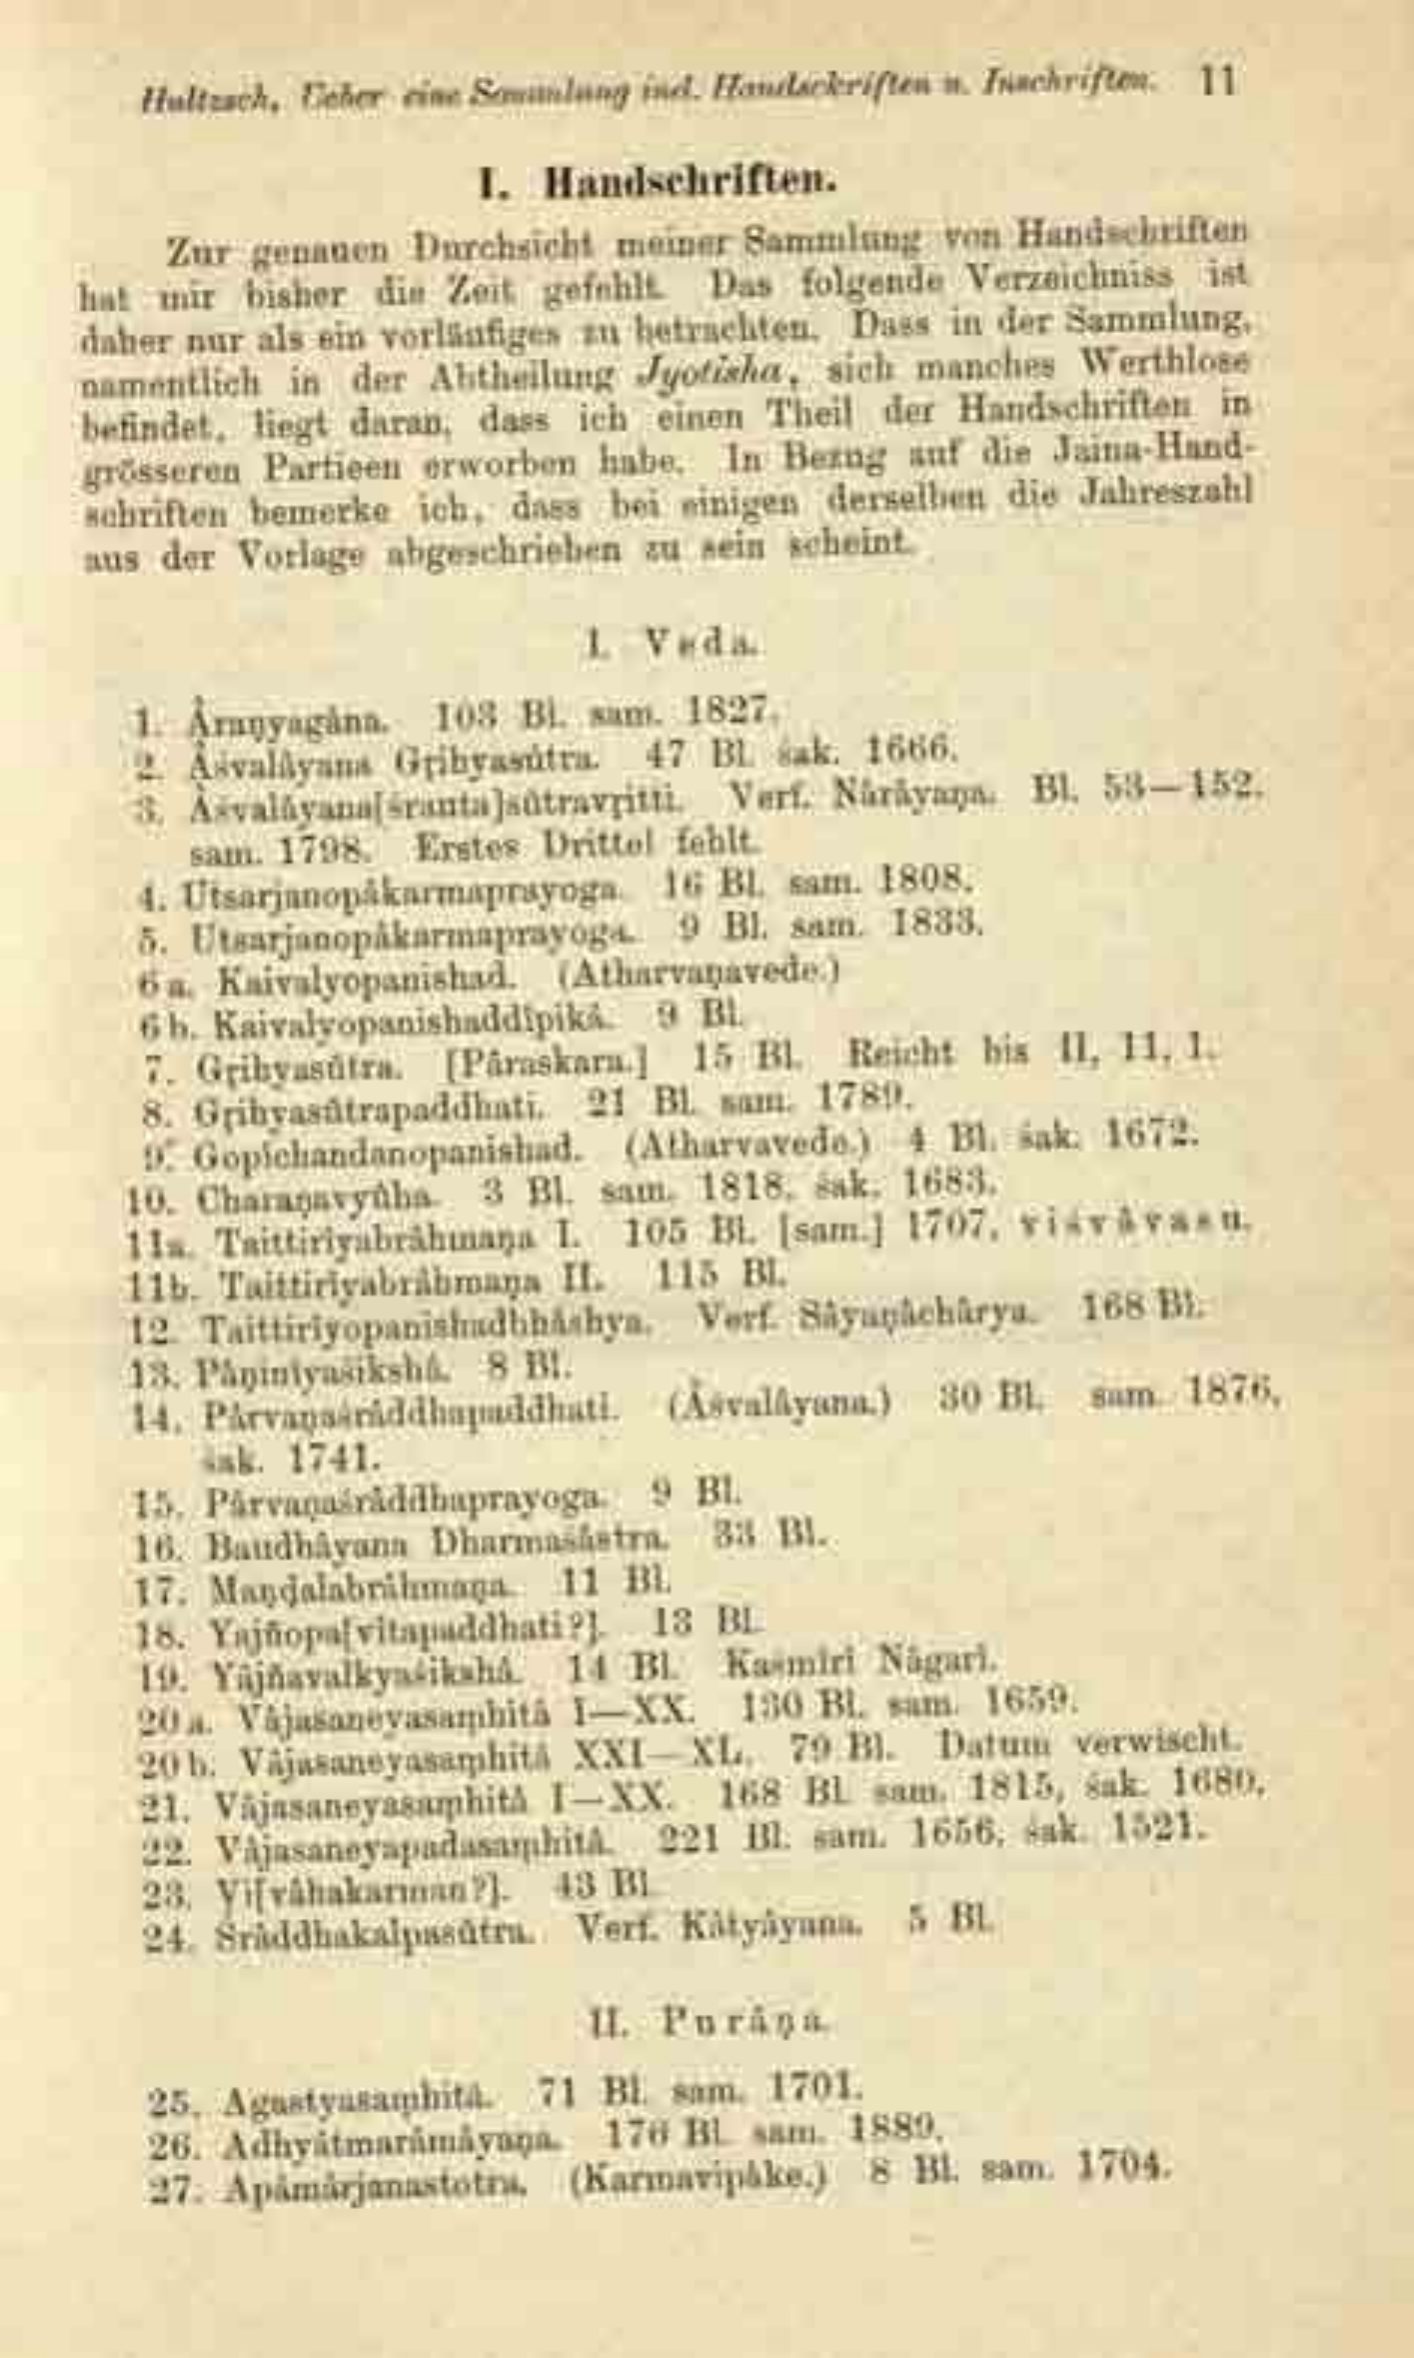 Hultzsch, Ueber eine Sammlung ind. Handschriften u. Inschriften. 11
I. Handschriften.
Zur genauen Durchsicht meiner Sammlung von Handschriften
hat mir bisher die Zeit gefehlt. Das folgende Verzeichniss ist
daher nur als ein vorläufiges zu betrachten. Dass in der Sammlung,
namentlich in der Abtheilung Jyotisha, sich manches Werthlose
befindet, liegt daran, dass ich einen Theil der Handschriften in
grösseren Partieen erworben habe. In Bezug auf die Jaina-Hand-
schriften bemerke ich, dass bei einigen derselben die Jahreszahl
aus der Vorlage abgeschrieben zu sein scheint.
I. Veda.
1. Âraṇyagâna. 103 Bl. sam. 1827.
2. Âśvalâyana Gṛihyasûtra. 47 Bl. śak. 1666.
3. Âśvalâyana[śranta]sûtravṛitti. Verf. Nârâyaṇa. Bl. 53—152.
sam. 1798. Erstes Drittel fehlt.
4. Utsarjanopâkarmaprayoga. 16 Bl. sam. 1808.
5. Utsarjanopâkarmaprayoga. 9 Bl. sam. 1833.
6 a. Kaivalyopanishad. (Atharvaṇavede.)
6 b. Kaivalyopanishaddîpikâ. 9 Bl.
7. Gṛihyasûtra. [Pâraskara.] 15 Bl. Reicht bis II, 11, 1.
8. Gṛihyasûtrapaddhati. 21 Bl. sam. 1789.
9. Gopîchandanopanishad. (Atharvavede.) 4 Bl. śak. 1672.
10. Charaṇavyûha. 3 Bl. sam. 1818, śak. 1683.
11a. Taittirîyabrâhmaṇa I. 105 Bl. [sam.] 1707, viśvâvasu.
11b. Taittirîyabrâhmaṇa II. 115 Bl.
12. Taittirîyopanishadbhâshya. Verf. Sâyaṇâchârya. 168 Bl.
13. Pâṇinîyaśikshâ. 8 Bl.
14. Pârvaṇaśrâddhapaddhati. (Âśvalâyana.) 30 Bl. sam. 1876,
śak. 1741.
15. Pârvaṇaśrâddhaprayoga. 9 Bl.
16. Baudhâyana Dharmaśâstra. 33 Bl.
17. Maṇḍalabrâhmaṇa. 11 Bl.
18. Yajñopa[vîtapaddhati?]. 13 Bl.
19. Yâjñavalkyaśikshâ. 14 Bl. Kaśmîrî Nâgarî.
20 a. Vâjasaneyasaṃhitâ I—XX. 130 Bl. sam. 1659.
20 b. Vâjasaneyasaṃhitâ XXI—XL. 79 Bl. Datum verwischt.
21. Vâjasaneyasaṃhitâ I—XX. 168 Bl. sam. 1815, śak. 1680.
22. Vâjasaneyapadasaṃhitâ. 221 Bl. sam. 1656, śak. 1521.
23. Vi[vâhakarman?]. 43 Bl.
24. Śrâddhakalpasûtra. Verf. Kâtyâyana. 5 Bl.
II. Purâṇa.
25. Agastyasaṃhitâ. 71 Bl. sam. 1701.
26. Adhyâtmarâmâyaṇa. 176 Bl. sam. 1889.
27. Apâmârjanastotra. (Karmavipâke.) 8 Bl. sam. 1704.